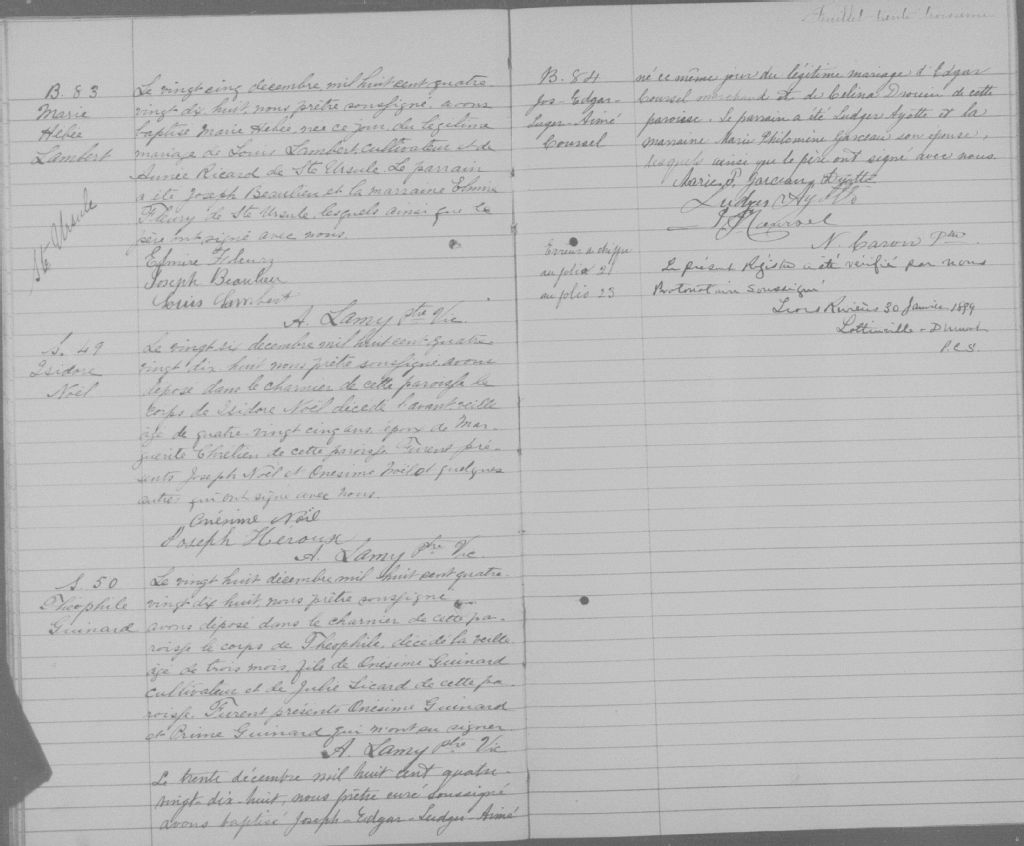 B. 83
Marie
Hebée
Lambert
Ste Ursule
Le vingt cinq decembre mil huit cent quatre
vingt dix huit, nous prêtre soussigné avons
baptisé Marie Hebée, née ce jour, du legitime
mariage de Louis Lambert, cultivateur et de
Année Ricard de Ste Ursule Le parrain
a été Joseph Beaulieu et la marraine Elmire
Fleury de Ste Ursule lesquels ainsi que le
père ont signé avec nous.
Elmire Fleury
Joseph Beaulieu
Louis Lambert
A. Lamy Ptre Vic.
S. 49
Isidore
Noël
Le vingt six decembre mil huit cent quatre
vingt dix huit nous prêtre soussigné avons
depose dans le charnier de cette paroisse le
corps de Isidore Noël décédé l'avant veille
agé de quatre-vingt cinq ans, époux de Mar-
guerite Chretien de cette paroisse Furent pré-
sents Joseph Noël et Onesime Noël et quelques
autres qui ont signé avec nous.
Onésime Noël
Joseph Heroux
A. Lamy Ptre Vic.
S. 50
Théophile
Guinard
Le vingt huit décembre mil huit cent quatre-
vingt dix huit, nous prêtre soussigné
avons déposé dans le charnier de cette pa-
roisse le corps de Théophile, décédé la veille
agé de trois mois, fils de Onesime Guinard
cultivateur et de Julie Sicard de cette pa-
roisse. Furent présents Onésime Guinard
et Prime Guinard qui n'ont su signer
A. Lamy ptre Vic
Le trente décembre mil huit cent quatre-
vingt-dix-huit, nous prêtre curé soussigné
avons baptisé Joseph-Edgar-Ludger-Aimé
feuillet trente troisieme
B. 84
Jos-Edgar-
Luger-Aimé
Coursel
né ce même jour du légitime mariage d'Edgar
Coursel marchand et de Celina Drouin de cette
paroisse. Le parrain a été Ludger Ayotte et la
marraine Marie Philomène Garceau son épouse,
lesquels ainsi que le père ont signé avec nous.
Marie P. Garceau Ayotte
Ludger Ayotte
Coursel
N. Caron Ptre
Erreur de chiffre
au folio 21
au folio 23
Le présent Régistre a été vérifié par nous
Protonotaire soussigné
Trois Rivières 30 Janvier 1899
Lottinville
P.C.S.